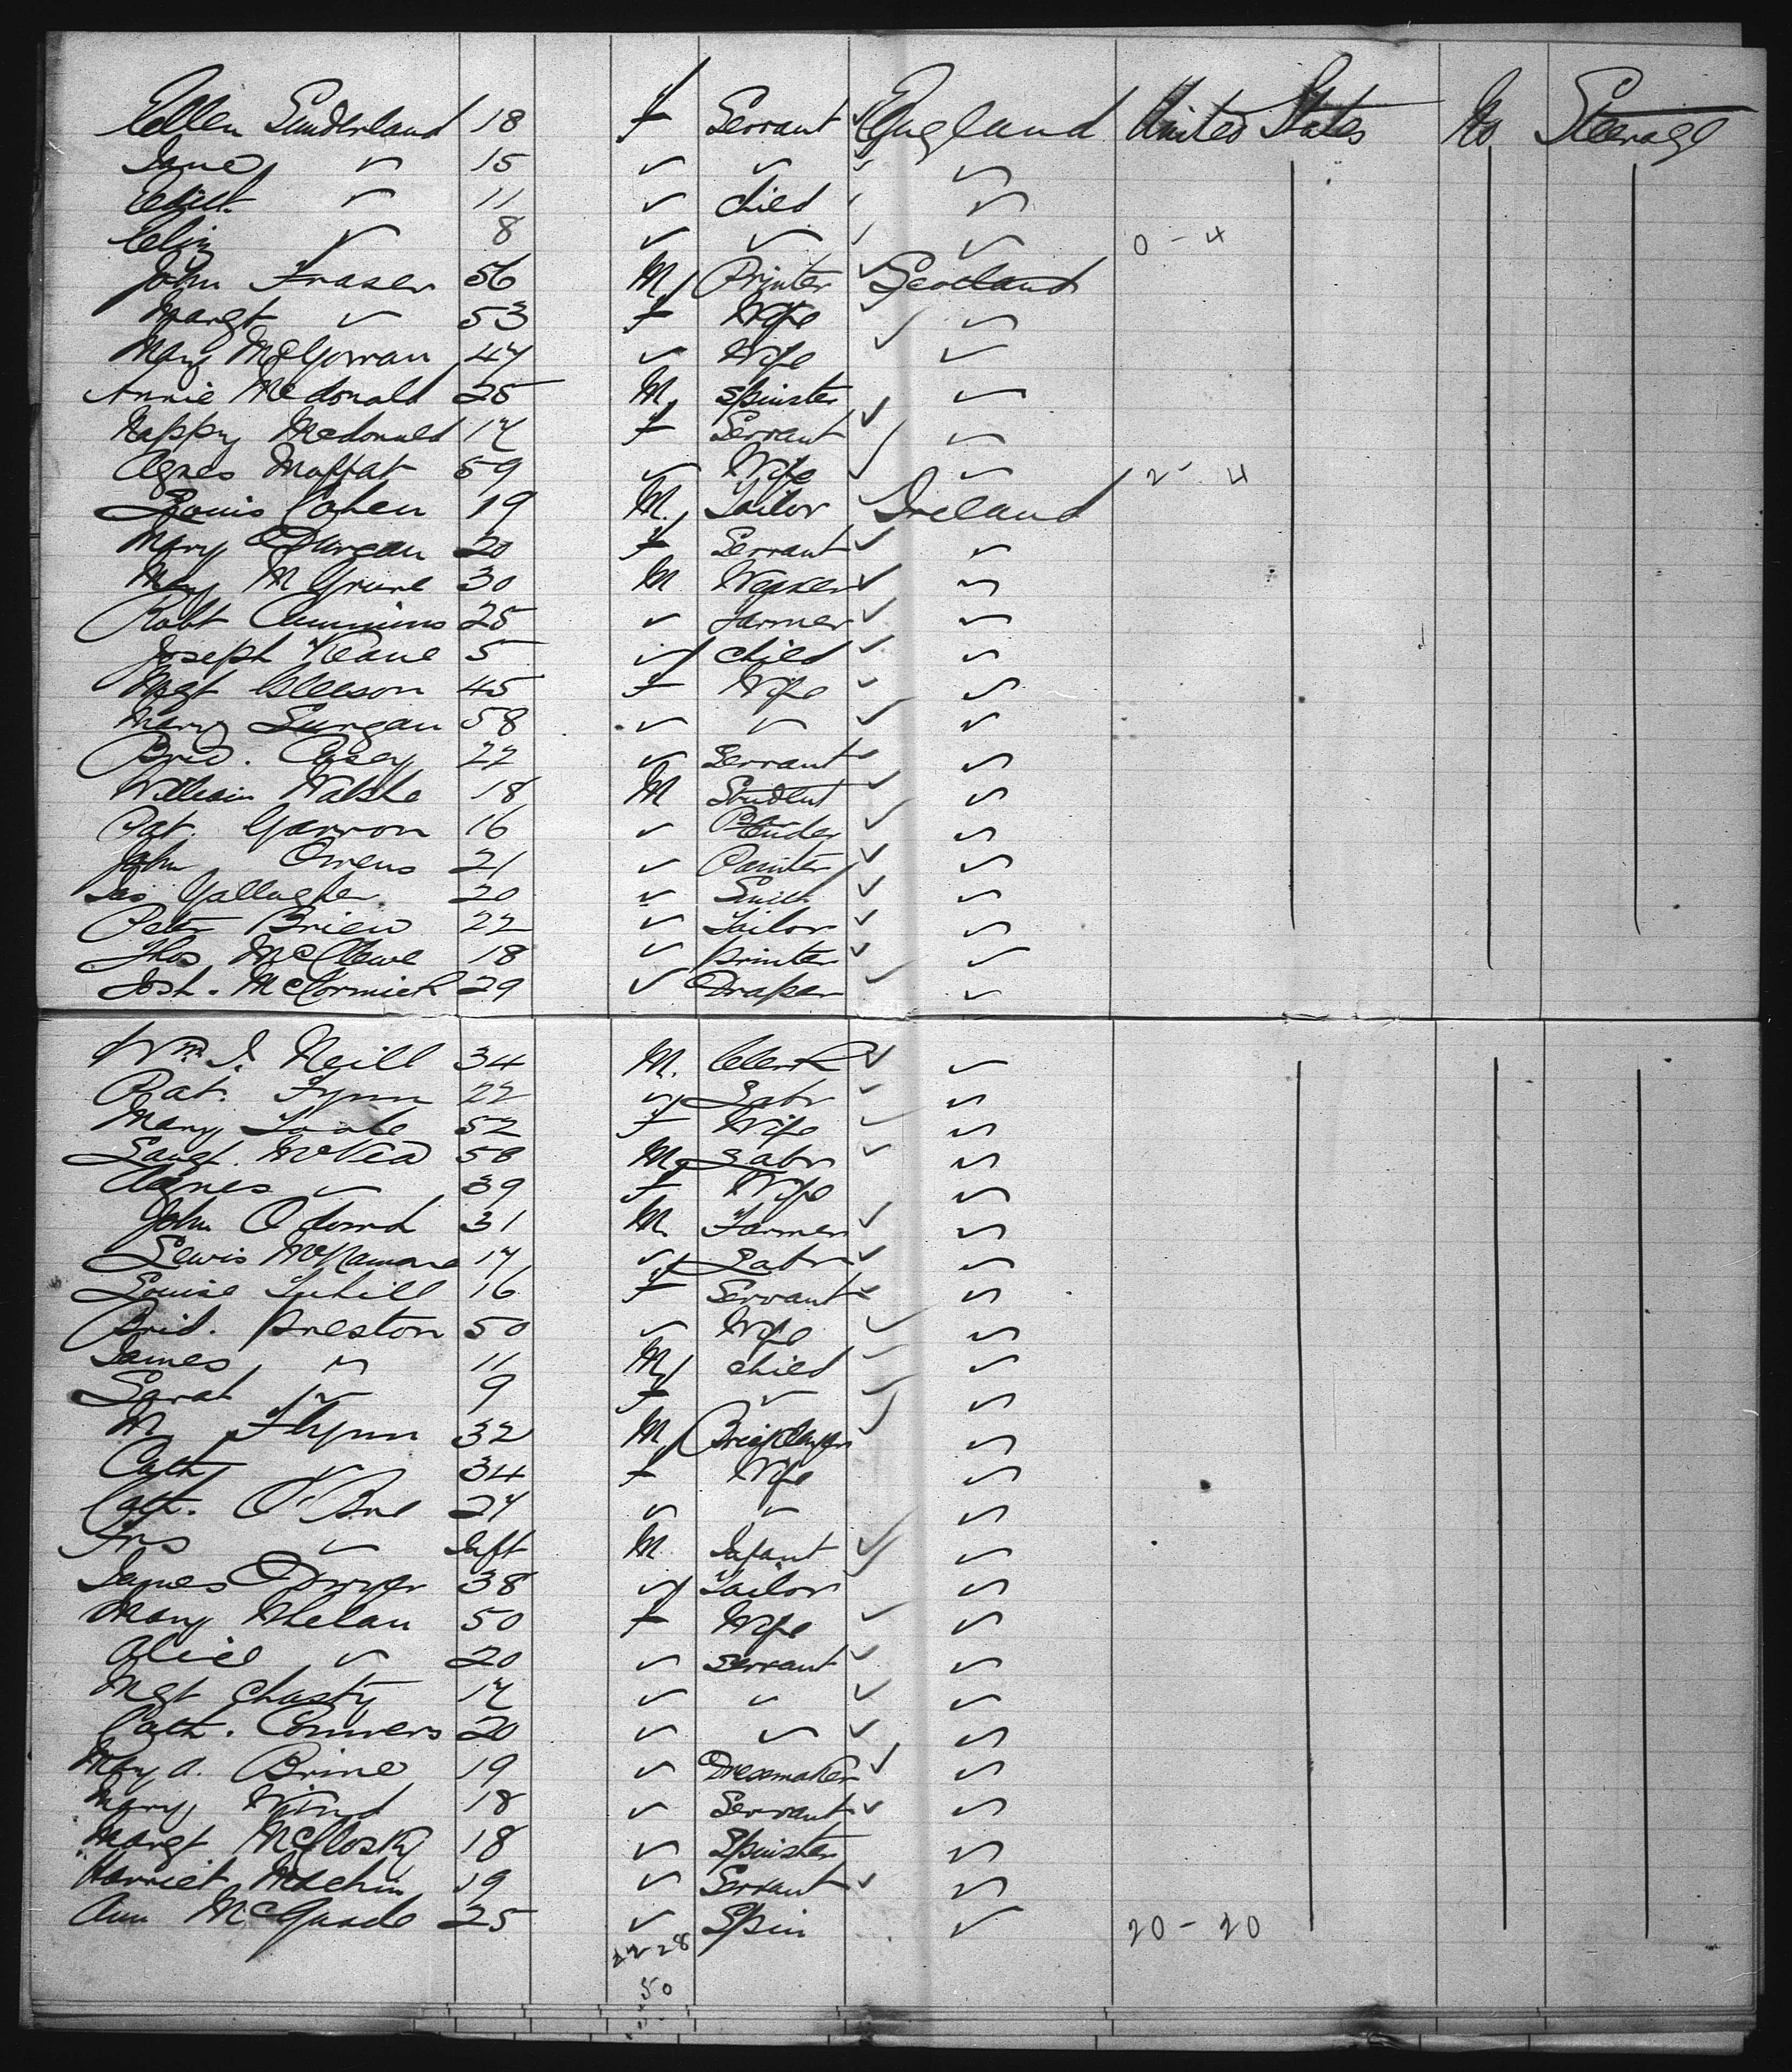 Ellen Sunderland 18 f Servant England United States No Steerage
Jane " 15 " " "
Edith " 11 " child "
Eliz " 8 " " " 0 - 4
John Fraser 56 M Printer Scotland
Margt " 53 f Wife "
Mary McGowan 47 " Wife "
Annie McDonald 25 M spinster "
Mcdonald 17 f Servant "
Agnes Moffat 59 " Wife " 2 - 4
Louis Cohen 19 M. Tailor Ireland
Mary 20 f Servant "
30 M Weaver "
Robt Cummins 25 " farmer "
Joseph Keane 5 " child "
Mgt Gleeson 45 f Wife "
Mary 58 " " "
Brid. Casey 22 " Servant "
William Walshe 18 M Student "
Pat. 16 " "
John Owens 21 " Painter "
Jas Gallagher 20 " Smith "
Peter Brien 22 " Tailor "
Thos 18 " printer "
Josh. McCormick 29 " Draper "
Wm. J. Neill 34 M. Clerk "
Pat. Flynn 22 " Labr "
Mary Toole 52 f Wife "
McVea 50 M Labr "
Agnes " 39 f Wife "
John Odowd 31 M. Farmer "
Lewis McNamara 17 " Labr "
Louise Tuhill 16 f Servant "
Brid. Preston 50 " Wife "
James " 11 M child "
Sarah " 9 f " "
M Flynn 32 M Bricklayer "
Cath " 34 f Wife "
Cath. 24 " " "
Frs " Inft M Infant "
James Dwyer 38 " Tailor "
Mary Whelan 50 f Wife "
Alice " 20 " servant "
Mgt Chasty 17 " " "
Cath. Connors 20 " " "
Mary A. Brine 19 " Dressmaker "
Mary 18 " Servant "
Margt McClosky 18 " Spinster "
Harriet Machin 19 " Servant "
Ann McQuade 25 " Spin " 20 - 20
22-28
50